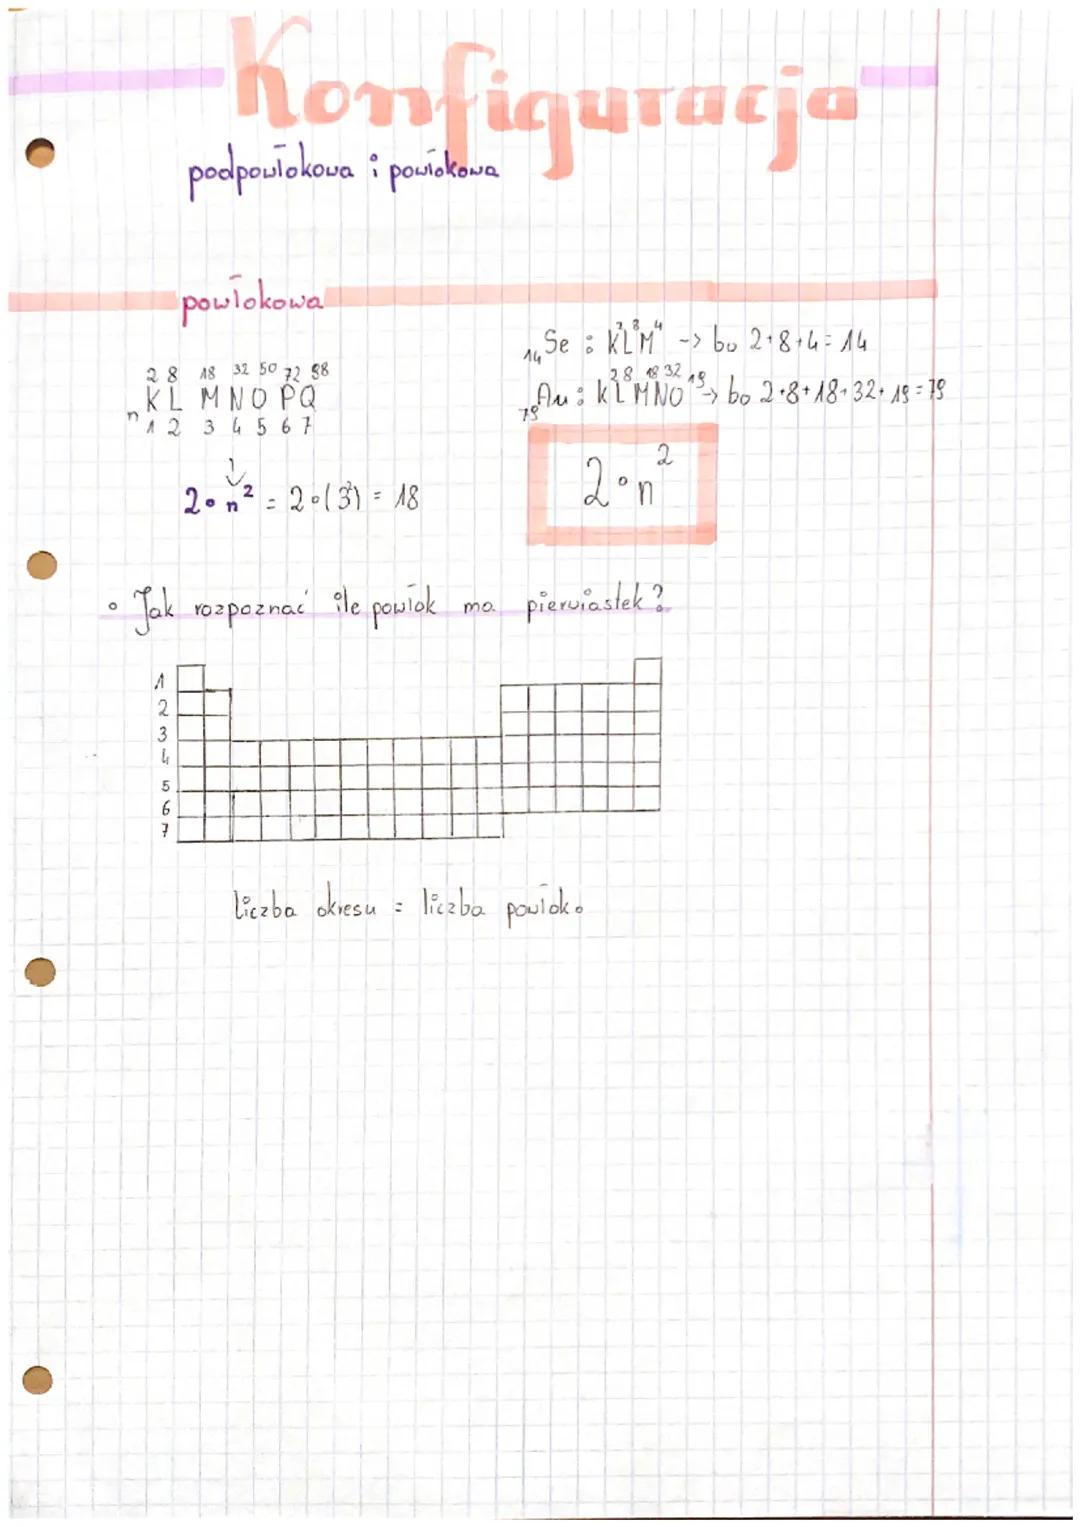 Konfiguracja
podpowłokowa i powłokowa
powłokowa
₁₄Se : K²L⁸M⁴ -> bo 2+8+4=14
₇₉Au : K²L⁸M¹⁸N³²O¹⁹ -> bo 2+8+18+32+19=79
2 8 18 32 50 72 98
K L M N O P Q
n 1 2 3 4 5 6 7
2∘n² = 2∘(3²) = 18
2∘n²
∘ Jak rozpoznać ile powłok ma pierwiastek?
1
2
3
4
5
6
7
liczba okresu = liczba powłok.